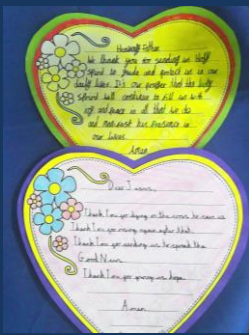 Heavenly Father
We thank you for sending us Holy
Spirit to guide and protect us in our
daily lives. It's our prayer that the holy
spirit will continue to fill us with
and peace in all that we do
and manifest his presence in
our lives.
Amen
Dear Jesus,
Thank You for dying on the cross to save us
Thank You for rising again after that.
Thank You for sending us to spread the
Good News
Thank You for giving us hope.
Amen